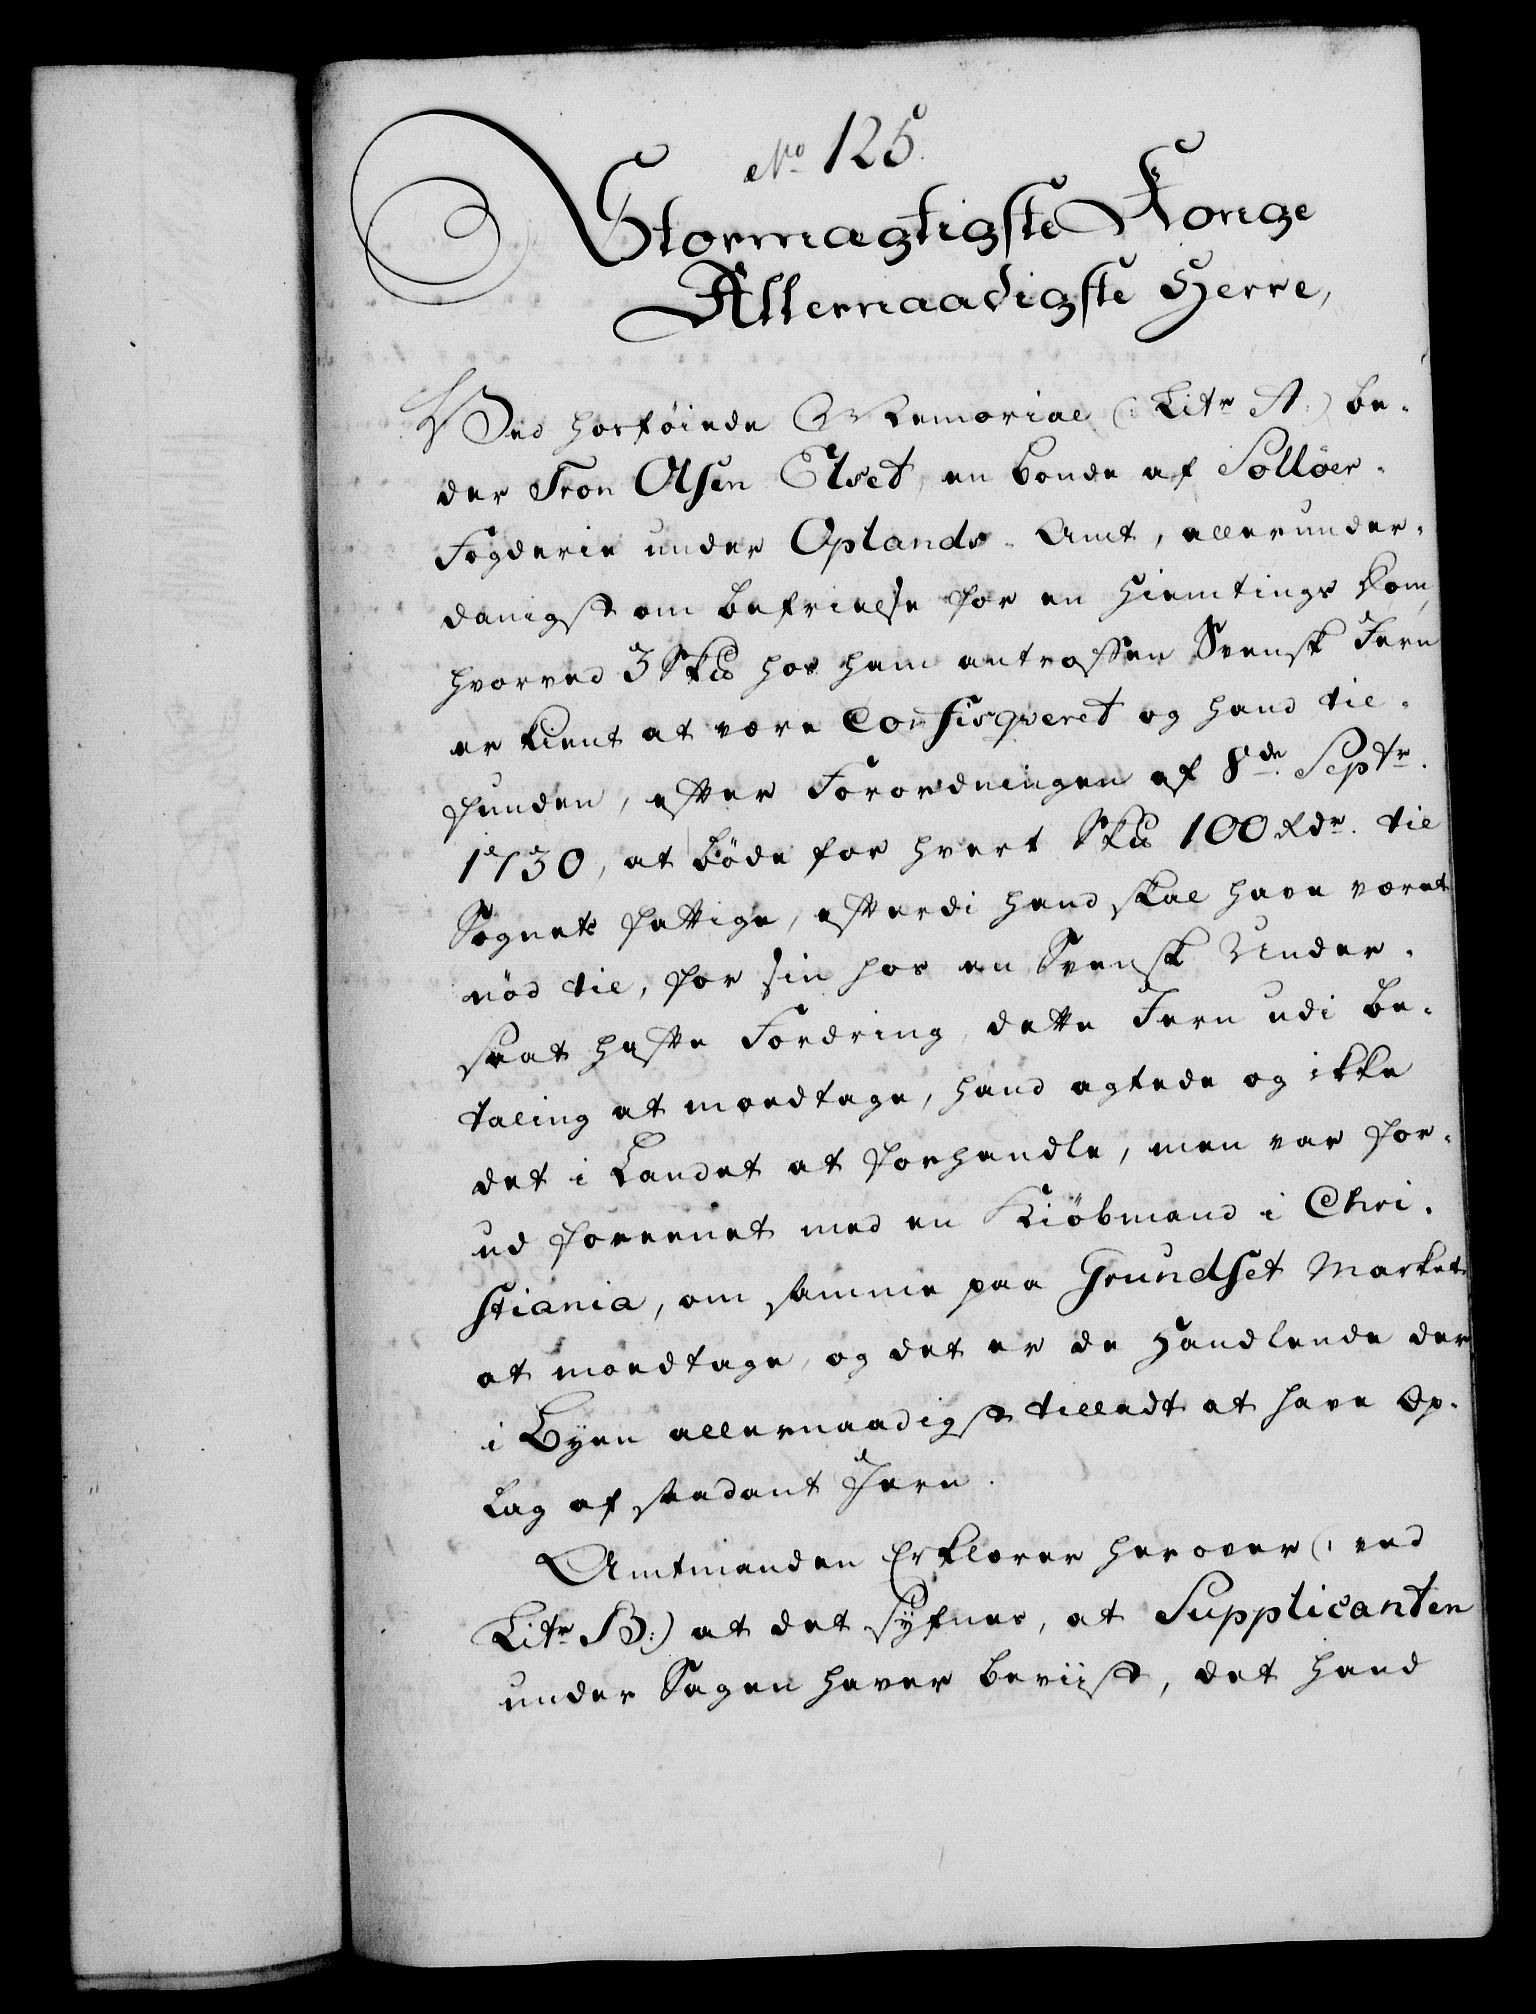 No 125.
Stormægtigste Konge
Allernaadigste Herre,
Ved hosføiede Memorial (: Litr A:) be-
der Tron Olsen Elset, en bonde af Sollöer-
Fogderie under Oplands- Amt, allerunder-
danigst om befrielse for en Hiemtings Dom,
hvorved 3 Skt hos ham antroffen Svensk Jern
er kient at være Confisqveret og hand til-
funden, efter Forordningen af 8de Septr.
1730, at böde for hvert Skt 100 Rdr. til
Sognets fattige, efterdi hand skal have været
nöd til, for sin hos en Svensk Under-
saat hafte Fordring, dette Jern udi be-
taling at modtage, hand agtede og ikke
det i Landet at forhandle, men var for-
ud foreenet med en Kiöbmand i Chri-
stiania, om samme paa Grundset Market
at modtage, og det er de Handlende der
i Byen allernaadigst tilladt at have Op-
lag af saadant Jern.
Amtmanden Erklærer herover (: ved
Litr B:) at det syfnes, at Supplicanten
under Sagen haver beviist, det hand